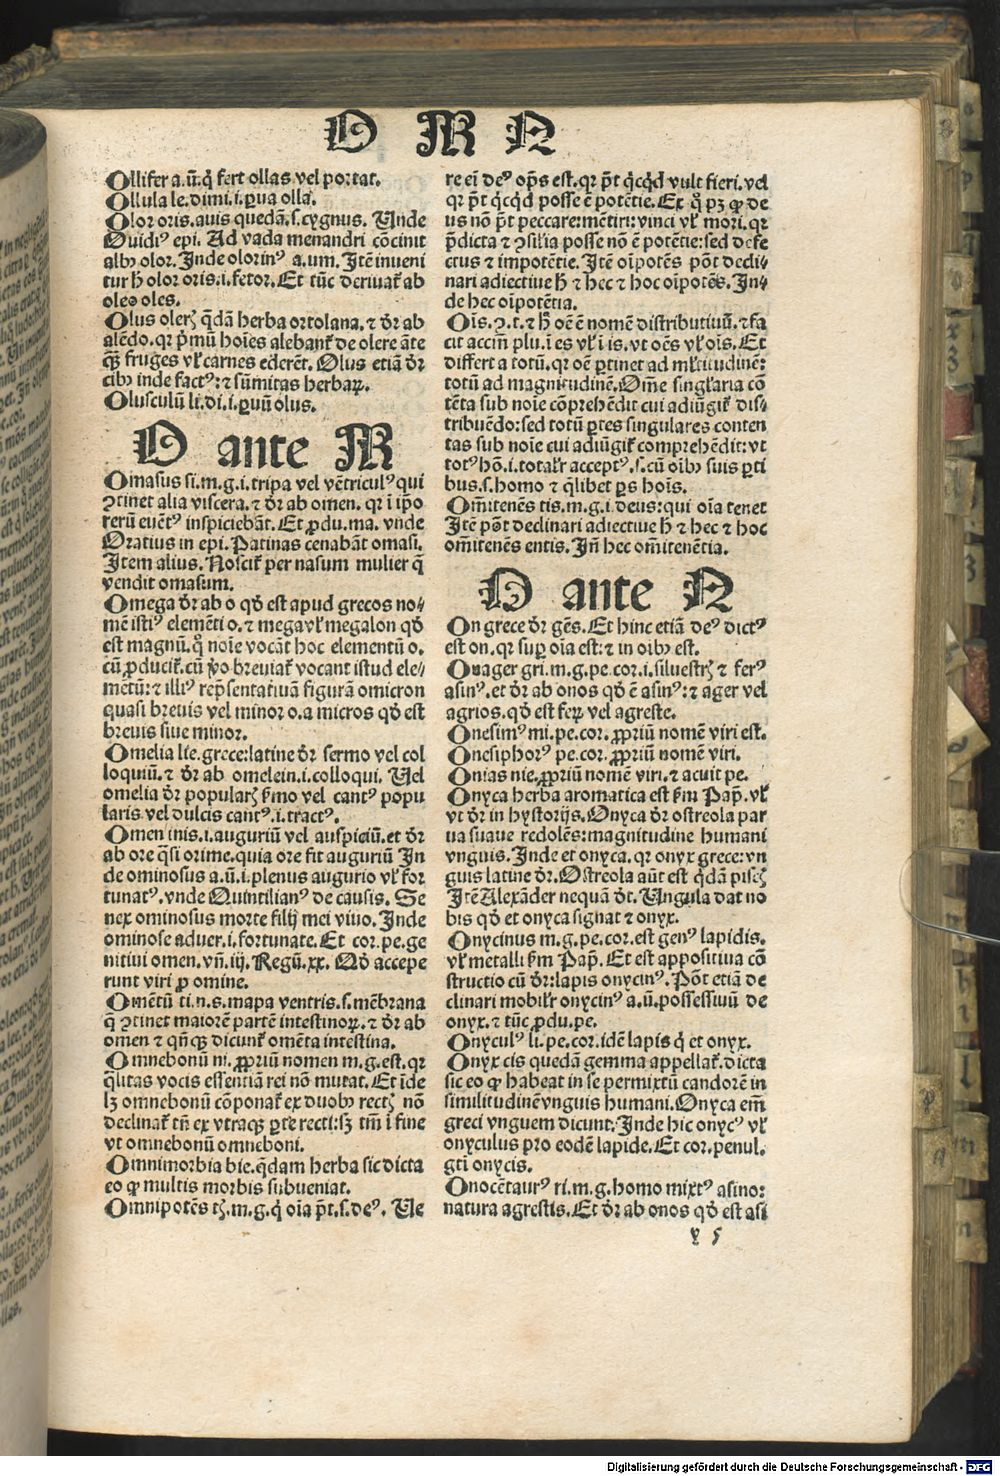 O M N
Ollifer a.ũ.q̇ fert ollas vel portat.
Ollula le.dimi.i.ꝑua olla.
Olor oris.auis quedã.s.cygnus. Unde
Ouidiꝰ epi. Ad vada menandri cõcinit
albꝰ olor. Inde olorinꝰ a.um. Itẽ inueni
tur h̄ olor oris.i.fetor. Et tũc deriuat̃ ab
oleo oles.
Olus oler̃ q̃dã herba ortolana. ⁊ dr̃ ab
alẽdo.qr p̃mũ hoĩes alebant̃ de olere ãte
q̃ꝫ fruges vl̃ carnes ederẽt. Olus etiã dr̃
cibꝰ inde factꝰ:⁊ sũmitas herbaꝝ.
Olusculũ li.di.i.ꝑuũ olus.
O ante M
Omasus si.m.g.i.tripa vel vẽtriculꝰ qui
ꝯtinet alia viscera. ⁊ dr̃ ab omen. qr ĩ ip̃o
rerũ euẽtꝰ inspiciebãt. Et ꝓdu.ma. vnde
Oratius in epi. Patinas cenabãt omasi.
Item alius. Noscit̃ per nasum mulier q̃
vendit omasum.
Omega dr̃ ab o qd̛ est apud grecos no⸗
mẽ istiꝰ elemẽti o. ⁊ mega vl̃ megalon qd̛
est magnũ.q̊ noĩe vocãt hoc elementũ o.
cũ ꝓducit̃.cũ v̊o breuiat̃ vocant istud ele⸗
mẽtũ:⁊ illiꝰ rep̃sentatiuã figurã omicron
quasi breuis vel minor o.a micros qd̛ est
breuis siue minor.
Omelia lie.grece:latine dr̃ sermo vel col
loquiũ.⁊ dr̃ ab omelein.i.colloqui. Uel
omelia dr̃ popular̃ ẜmo vel cantꝰ popu
laris vel dulcis cantꝰ.i.tractꝰ.
Omen inis.i.auguriũ vel auspiciũ.et dr̃
ab ore q̃si orime.quia ore fit auguriũ In
de ominosus a.ũ.i.plenus augurio vl̃ for
tunatꝰ.vnde Quintilianꝰ de causis. Se
nex ominosus morte filij mei viuo. Inde
ominose aduer.i.fortunate. Et cor.pe.ge
nitiui omen. vñ.iij. Regũ.xx. Qd̛ accepe
runt viri ꝓ omine.
Omẽtũ ti.n.s.mapa ventris.s.mẽbrana
q̃ ꝯtinet maiorẽ partẽ intestinoꝝ. ⁊ dr̃ ab
omen ⁊ qñqꝫ dicunt̃ omẽta intestina.
Omnebonũ ni. ꝓpriũ nomen m.g.est.qr
q̃litas vocis essentiã rei nõ mutat. Et ĩde
lꝫ omnebonũ cõponat̃ ex duobꝰ rect̃ nõ
declinat̃ tñ ex vtraqꝫ ꝑte recti:sꝫ tm̃ ĩ fine
vt omnebonũ omneboni.
Omnimorbia bie.q̃dam herba sic dicta
eo ꝙ multis morbis subueniat.
Omnipotẽs t̃.m.g.q̇ oĩa p̃t.s.deꝰ. Ue
re eĩ deꝰ op̃s est.qr p̃t q̇cqd̛ vult fieri.vel
qr p̃t q̇cqd̛ posse ẽ potẽtie. Ex q̊ pꝫ ꝙ de
us nõ p̃t peccare:mẽtiri:vinci vl̃ mori.qr
p̃dicta ⁊ ꝯsilia posse nõ ẽ potẽtie:sed defe
ctus ⁊ impotẽtie. Itẽ oĩpotẽs põt decli⸗
nari adiectiue h̄ ⁊ hec ⁊ hoc oĩpotẽs. In⸗
de hec oĩpotẽtia.
Oĩs.ꝯ.t.⁊ h̄ oẽ ẽ nomẽ distributiuũ.⁊ fa
cit accm̃ plu.ĩ es vl̃ ĩ is.vt oẽs vl̃ oĩs. Et
differt a totũ.qr oẽ ꝑtinet ad ml̃titudinẽ:
totũ ad magnitudinẽ. Om̃e singl̃aria cõ
tẽta sub noĩe cõprehẽdit cui adiũgit̃ dis⸗
tribuẽdo:sed totũ ꝑtes singulares conten
tas sub noĩe cui adiũgit̃ comprehẽdit:vt
totꝰ hõ.i.total̃r acceptꝰ.s.cũ oĩbꝰ suis ꝑti
bus.s.homo ⁊ q̃libet ꝑs hoĩs.
Om̃itenẽs tis.m.g.i.deus:qui oĩa tenet
Itẽ põt declinari adiectiue h̄ ⁊ hec ⁊ hoc
om̃itenẽs entis. Iñ hec om̃itenẽtia.
O ante N
On grece dr̃ gẽs. Et hinc etiã deꝰ dictꝰ
est on.qr suꝑ oĩa est:⁊ in oĩbꝰ est.
Onager gri.m.g.pe cor.i.siluestr̃ ⁊ ferꝰ
asinꝰ.et dr̃ ab onos qd̛ ẽ asinꝰ:⁊ ager vel
agrios.qd̛ est feꝝ vel agreste.
Onesimꝰ mi.pe.cor. ꝓpriũ nomẽ viri est.
Onesiphorꝰ pe.cor. ꝓpriũ nomẽ viri.
Onias nie. ꝓpriũ nomẽ viri. ⁊ acuit pe.
Onyca herba aromatica est ẜm Pap̃. vl̃
vt dr̃ in hystorijs. Onyca dr̃ ostreola par
ua suaue redolẽs:magnitudine humani
vnguis. Inde et onyca.qr onyx grece:vn
guis latine dr̃. Ostreola aũt est q̃dã pisc̃
Itẽ Alexãder nequã dt̃. Ungula dat no
bis qd̛ et onyca signat ⁊ onyx.
Onycinus m.g.pe.cor.est genꝰ lapidis.
vl̃ metalli ẜm Pap̃. Et est appositiua cõ
structio cũ dr̃:lapis onycinꝰ. Põt etiã de
clinari mobil̃r onycinꝰ a.ũ.possessiuũ de
onyx.⁊ tũc ꝓdu.pe.
Onyculꝰ li.pe.cor.idẽ lapis q̇ et onyx.
Onyx cis quedã gemma appellat̃.dicta
sic eo ꝙ habeat in se permixtũ candorẽ in
similitudinẽ vnguis humani. Onyca em̃
greci vnguem dicunt. Inde hic onycꝰ vl̃
onyculus pro eodẽ lapide. Et cor.penul.
gti onycis.
Onocẽtaurꝰ ri.m.g.homo mixtꝰ asino:
natura agrestis. Et dr̃ ab onos qd̛ est asi
y 5
Digitalisierung gefördert durch die Deutsche Forschungsgemeinschaft - DFG